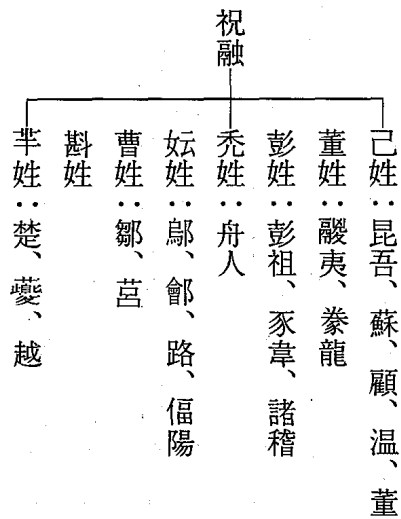 祝融
己姓：昆吾、蘇、顧、温、董
董姓：鬷夷、豢龍
彭姓：彭祖、豕韋、諸稽
禿姓：舟人
妘姓：鄔、鄶、路、偪陽
曹姓：鄒、莒
斟姓
芈姓：楚、蘷、越